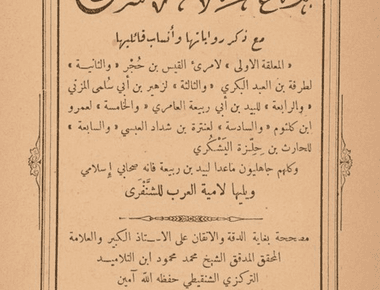 مع ذكر رواياتها وأنساب قائليها
« المعلقة الاولى » لامرئ القيس بن حُجْر « والثانية »
لطرفة بن العبد البكري « والثالثة » لزهير بن أبي سلمى المزني
« والرابعة » للبيد بن أبي ربيعة العامري « والخامسة » لعمرو
ابن كلثوم « والسادسة » لعنترة بن شداد العبسي « والسابعة »
للحارث بن حِلِـزة اليَشْكُري
وكلهم جاهليون ماعدا لبيد بن ربيعة فانه صحابي إسلامي
ويليها لامية العرب للشَّنْفَرى
مصححة بغاية الدقة والاتقان على الاستاذ الكبير والعلامة
المحقق المدقق الشيخ محمد محمود ابن التلاميـد
التركزي الشنقيطي حفظه اللّه آمين